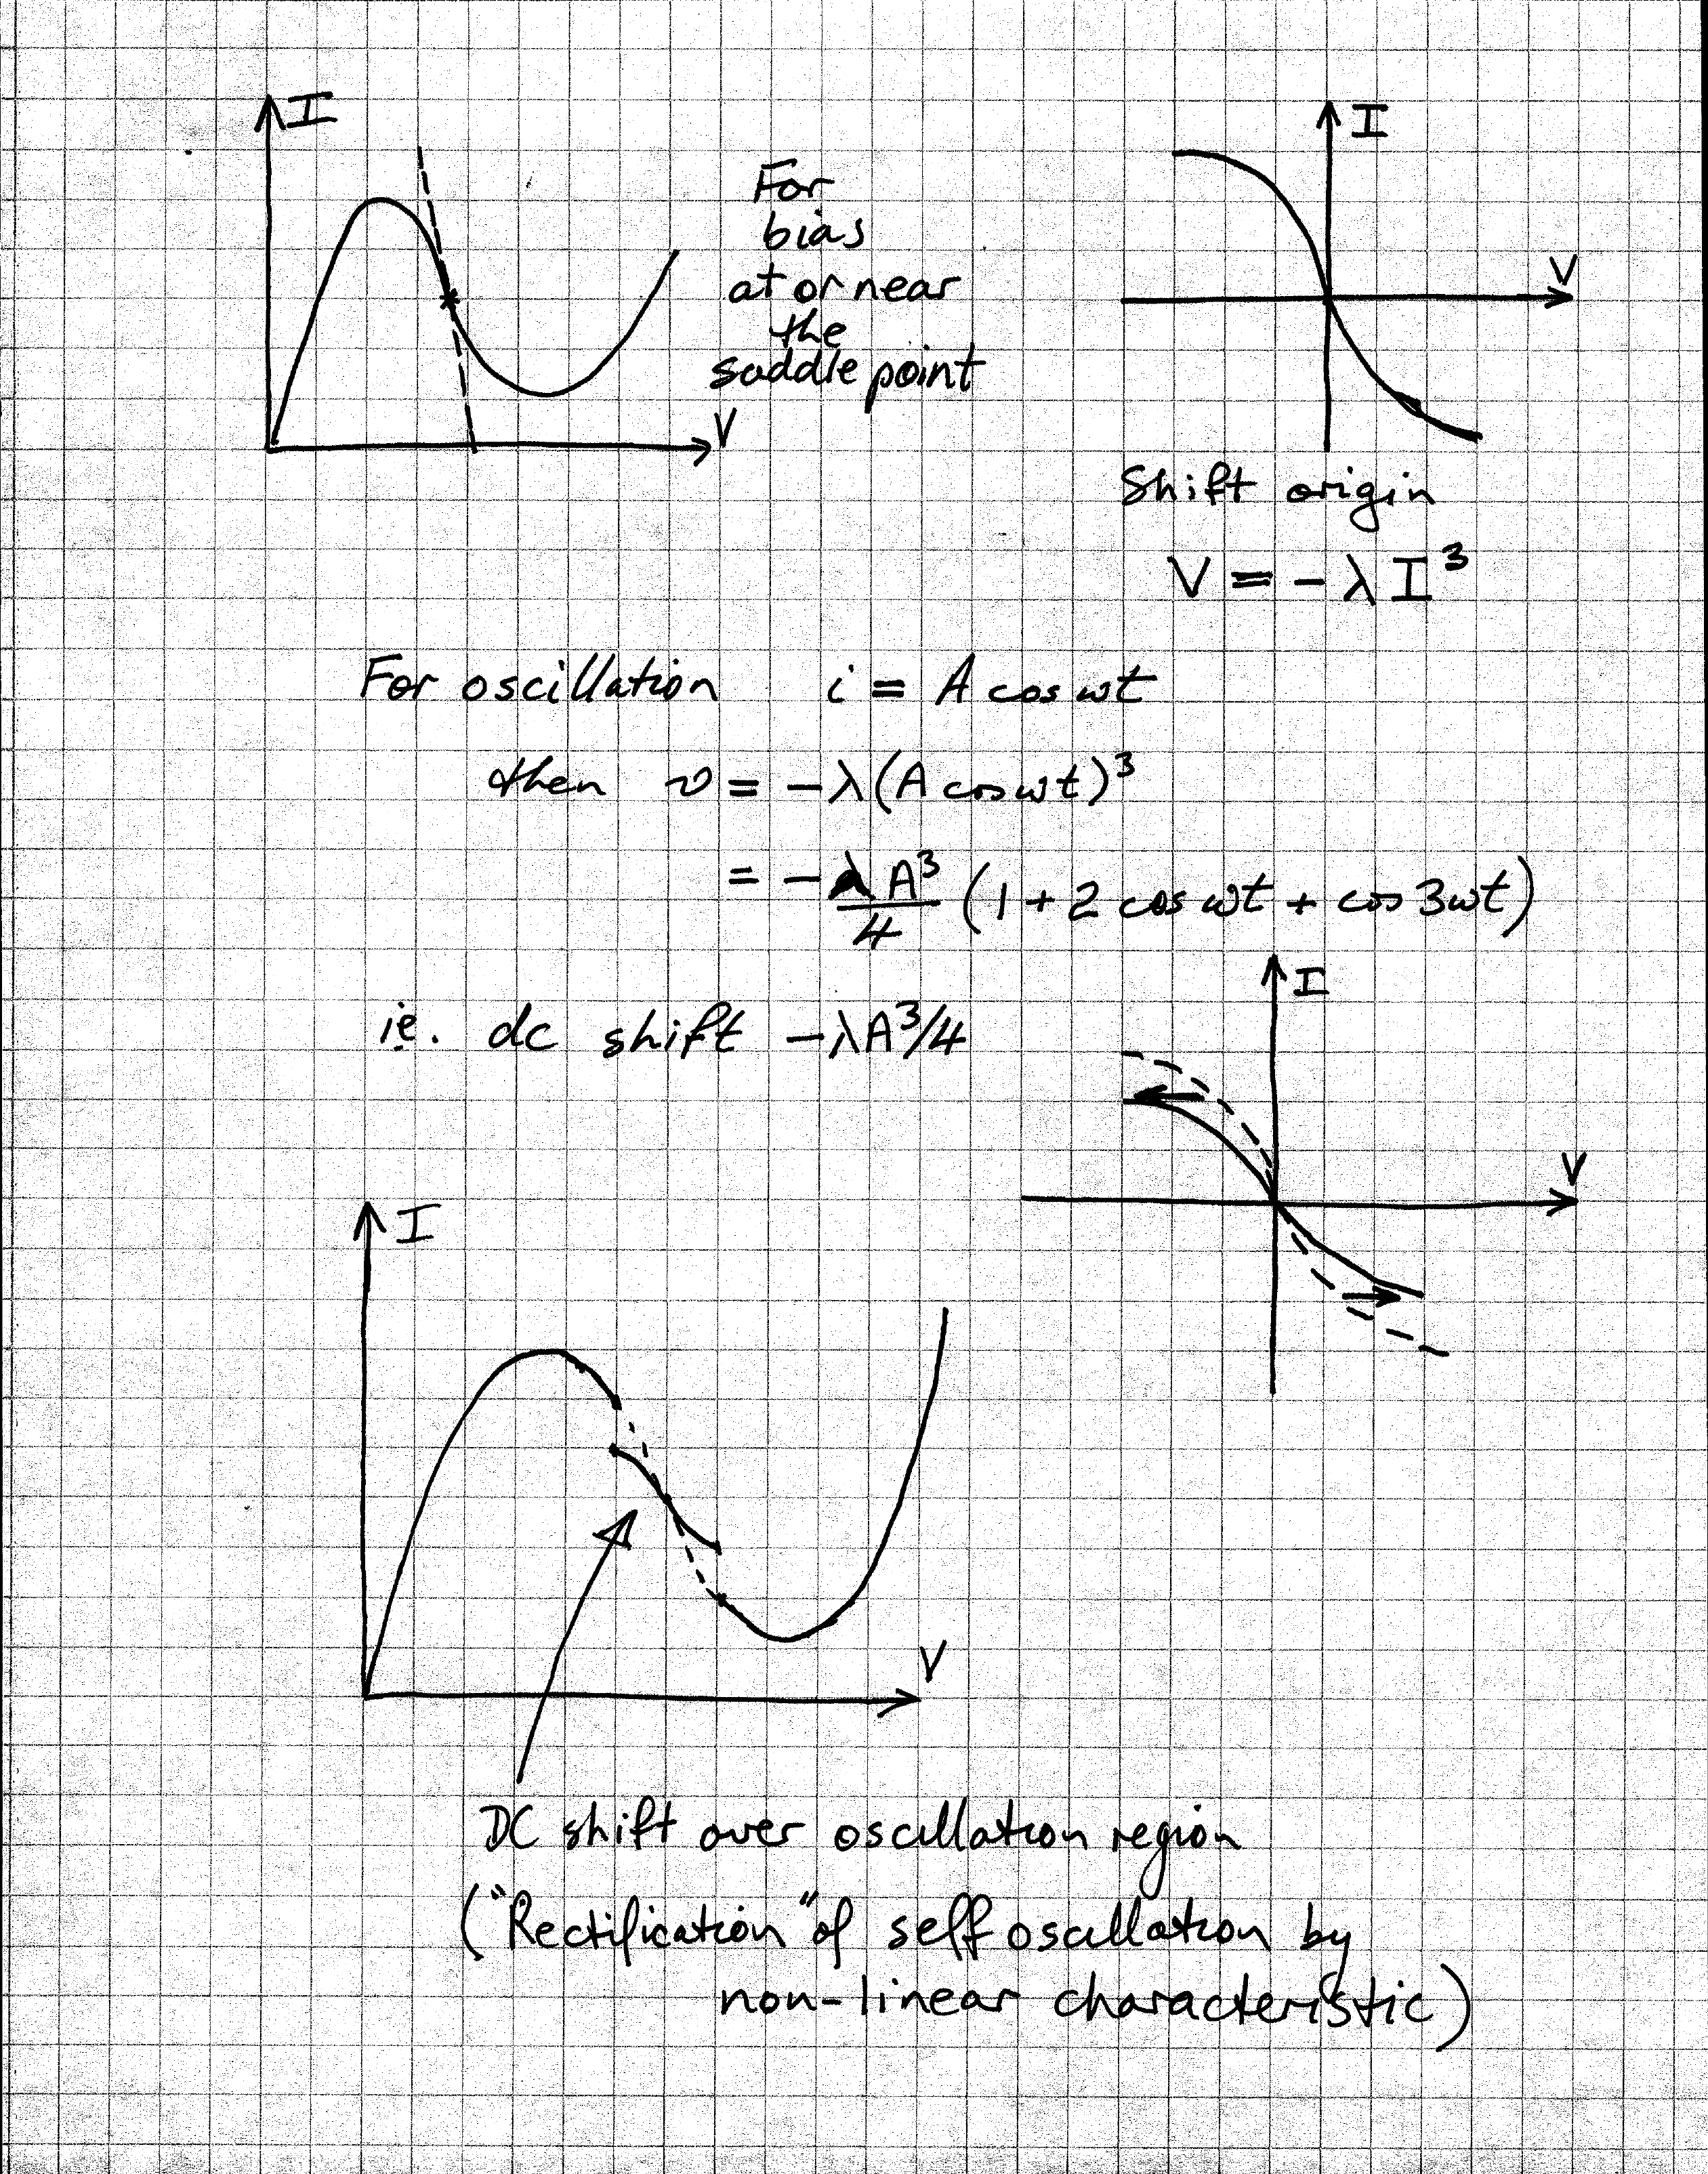 I
V
For
bias
at or near
the
saddle point
I
V
Shift origin
V = - λ I³
For oscillation i = A cos ωt
then v = -λ(A cos ωt)³
= - λA³/4 (1 + 2 cos ωt + cos 3ωt)
ie. dc shift -λA³/4
I
V
I
V
DC shift over oscillation region
("Rectification" of self oscillation by
non-linear characteristic)